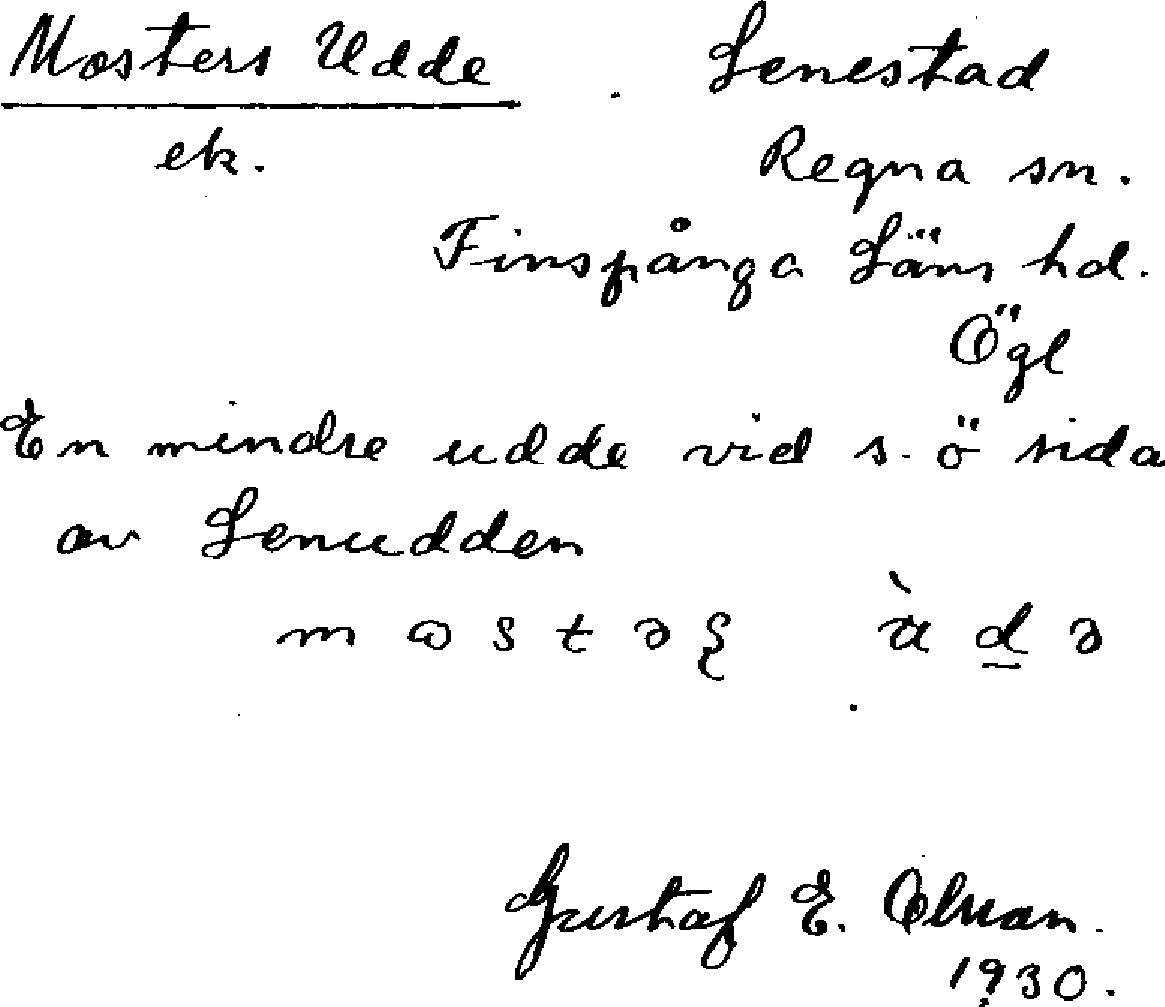 Mosters Udde . Lenestad
ek. Regna sn.
Finspånga Läns hd.
Ögl
En mindre udde vid s. ö sida
av Lenudden
Gustaf E. Olson.
1930.